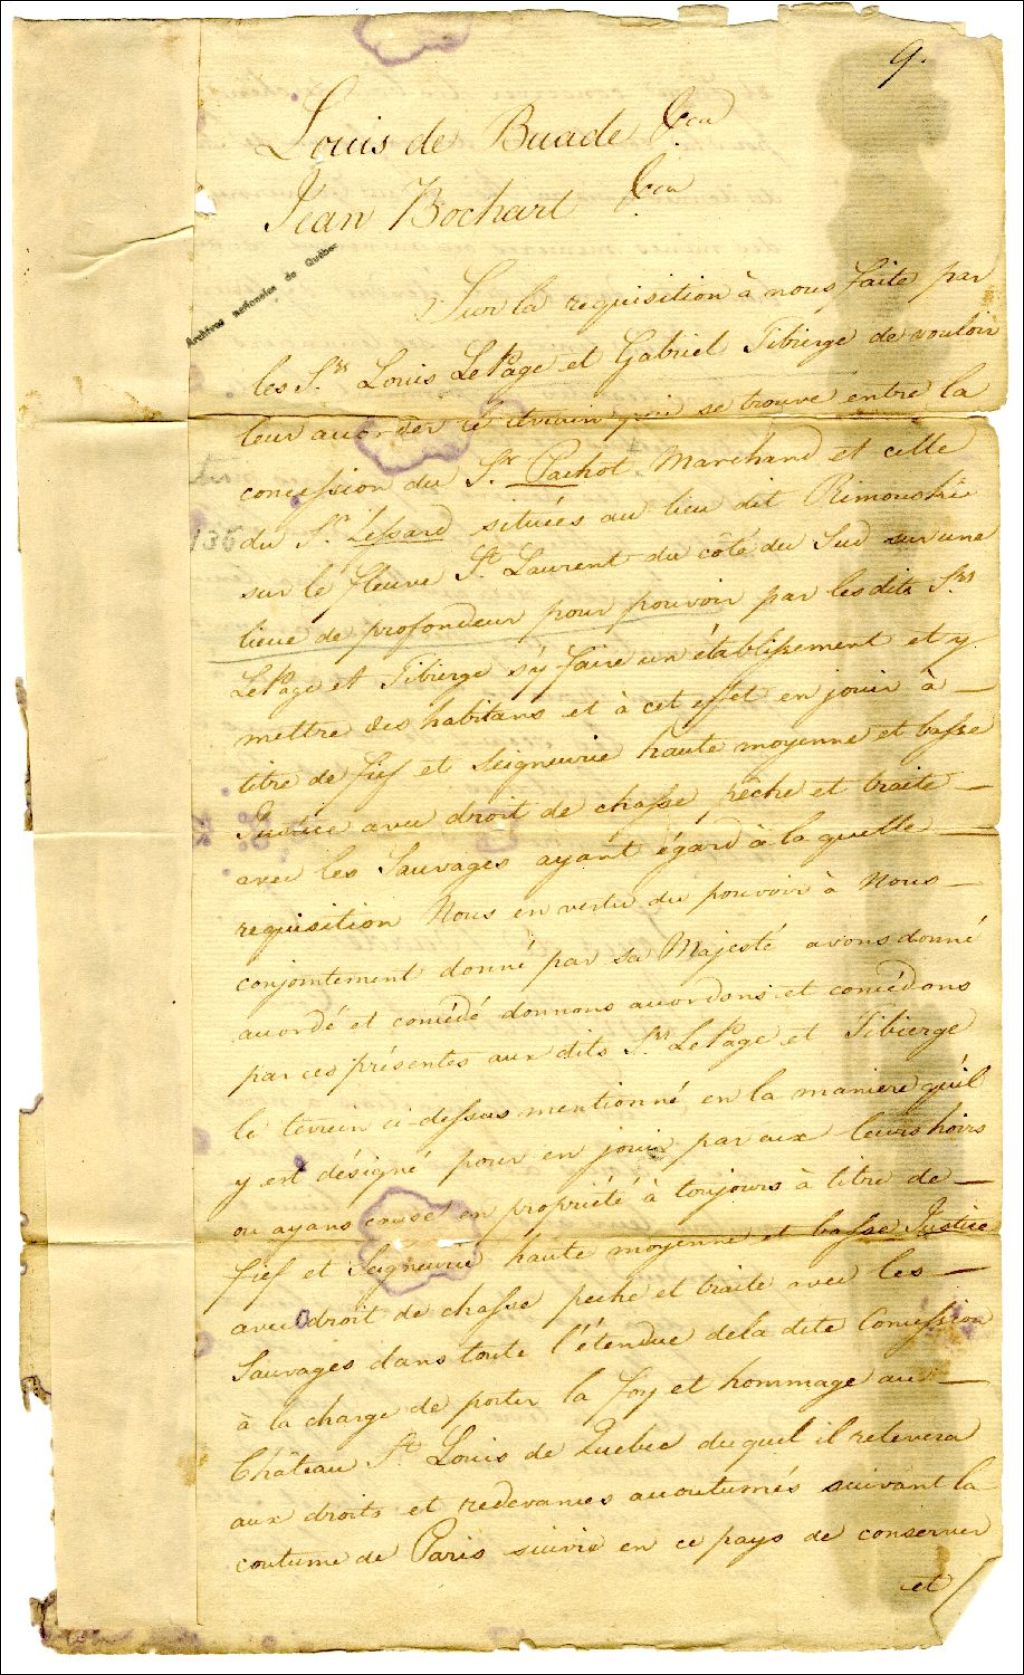 9.
Louis de Buade &ca
Jean Bochart &ca
Archives nationales de Québec
Sur la requisition à nous faite par
les Srs Louis LePage et Gabriel Tibierge de vouloir
leur accorder le terrein qui se trouve entre la
concession du Sr. Pachot Marchand et celle
du Sr. Lessard situées au lieu dit Rimouski
sur le fleuve St. Laurent du côté du Sud sur une
lieue de profondeur pour pouvoir par lesdits Srs
LePage et Tibierge s'y faire un établissement et y
mettre des habitans et à cet effet en jouir à
titre de fief et Seigneurie haute moyenne et basse
Justice avec droit de chasse pêche et traite
avec les Sauvages ayant égard à laquelle
requisition Nous en vertu du pouvoir à Nous
conjointement donné par sa Majesté avons donné
accordé et concédé donnons accordons et concédons
par ces présentes aux dits Srs. LePage et Tibierge
le terrein ci-dessus mentionné, en la maniere qu'il
y est désigné pour en jouir par eux leurs hoirs
ou ayans cause en propriété à toujours à titre de
fief et Seigneurie haute moyenne et basse Justice
avec droit de chasse peche et traite avec les
Sauvages dans toute l'étendue dela dite Concession
à la charge de porter la foy et hommage au
Château St. Louis de Quebec duquel il relevera
aux droits et redevances accoutumés suivant la
coutume de Paris suivie en ce pays de conserver
et